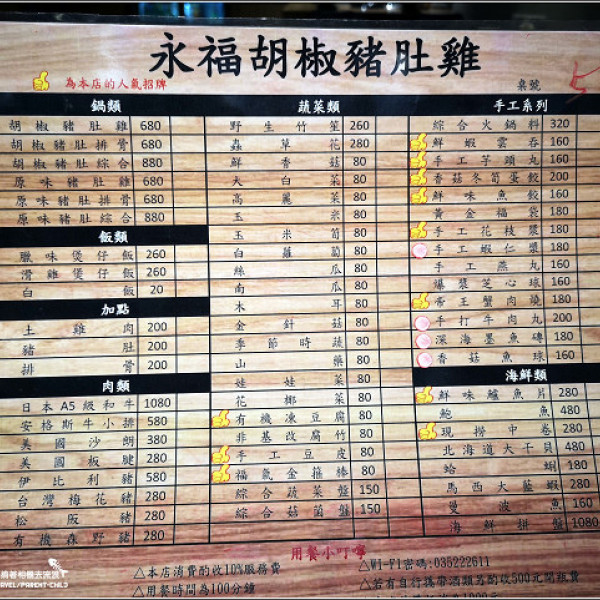 永福胡椒豬肚雞
為本店的人氣招牌
桌號
鍋類
胡椒豬肚雞 680
胡椒豬肚排骨 680
胡椒豬肚綜合 880
原味豬肚雞 680
原味豬肚排骨 680
原味豬肚綜合 880
飯類
臘味煲仔飯 260
滑雞煲仔飯 260
白飯 20
加點
土雞肉 200
豬肚 200
排骨 200
肉類
日本A5級和牛 1080
安格斯牛小排 580
美國沙朗 380
美國板腱 280
伊比利豬 580
台灣梅花豬 280
松阪豬 280
有機森野豬 280
蔬菜類
野生竹笙 260
蟲草花 280
鮮香菇 80
大白菜 80
高麗菜 80
玉米 80
玉米筍 80
白蘿蔔 80
絲瓜 80
南瓜 80
木耳 80
金針菇 80
季節時蔬 80
山藥 80
娃娃菜 80
花椰菜 80
有機凍豆腐 80
非基改腐竹 80
手工豆皮 80
福氣金箍棒 80
綜合蔬菜盤 150
綜合菇菌盤 150
手工系列
綜合火鍋料 320
鮮蝦雲吞 160
手工芋頭丸 160
香菇冬筍蛋餃 200
鮮味魚餃 160
黃金福袋 180
手工花枝漿 180
手工蝦仁漿 180
手工燕丸 160
爆漿芝心球 160
帝王蟹肉燒 180
手打牛肉丸 200
深海墨魚磚 180
香菇魚球 160
海鮮類
鮮味鱸魚片 280
鮑魚 480
現撈中卷 280
北海道大干貝 480
蛤蜊 180
馬西大藍蝦 280
曼波魚 160
海鮮拼盤 1080
用餐小叮嚀
△本店消費酌收10%服務費
△用餐時間為100分鐘
△Wi-Fi密碼:035222611
△若有自行攜帶酒類另酌收500元開瓶費